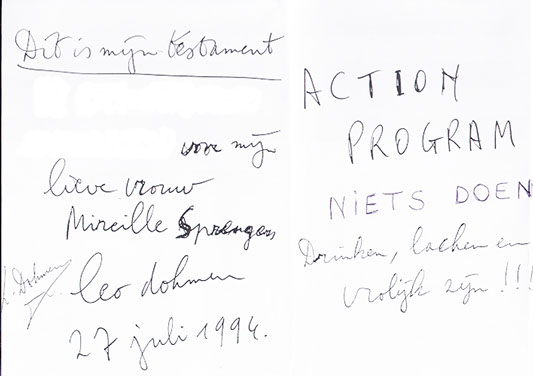 Dit is mijn testament
voor mijn
lieve vrouw
Mireille Sprengers
L. Dohmen
leo dohmen
27 juli 1994.
ACTION
PROGRAM
NIETS DOEN
Drinken, lachen en
vrolijk zijn !!!